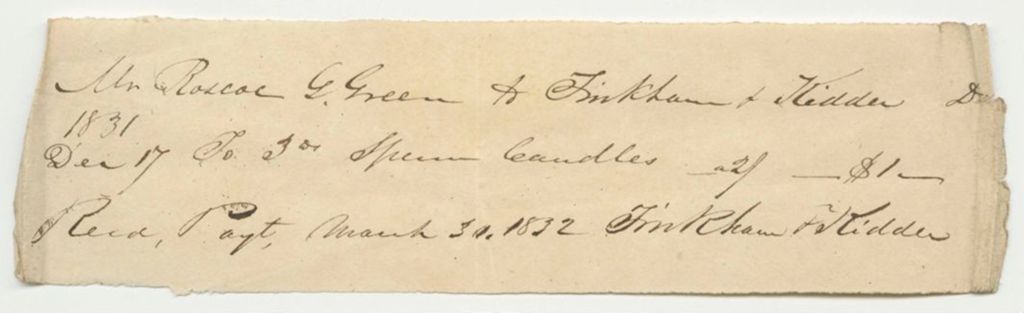 Mr Roscoe G. Green to Tinkham & Kidder Dr
1831
Dec 17 To 3 Sperm Candles 2/ — $1 —
Recd, Payt, March 31, 1832 Tinkham & Kidder